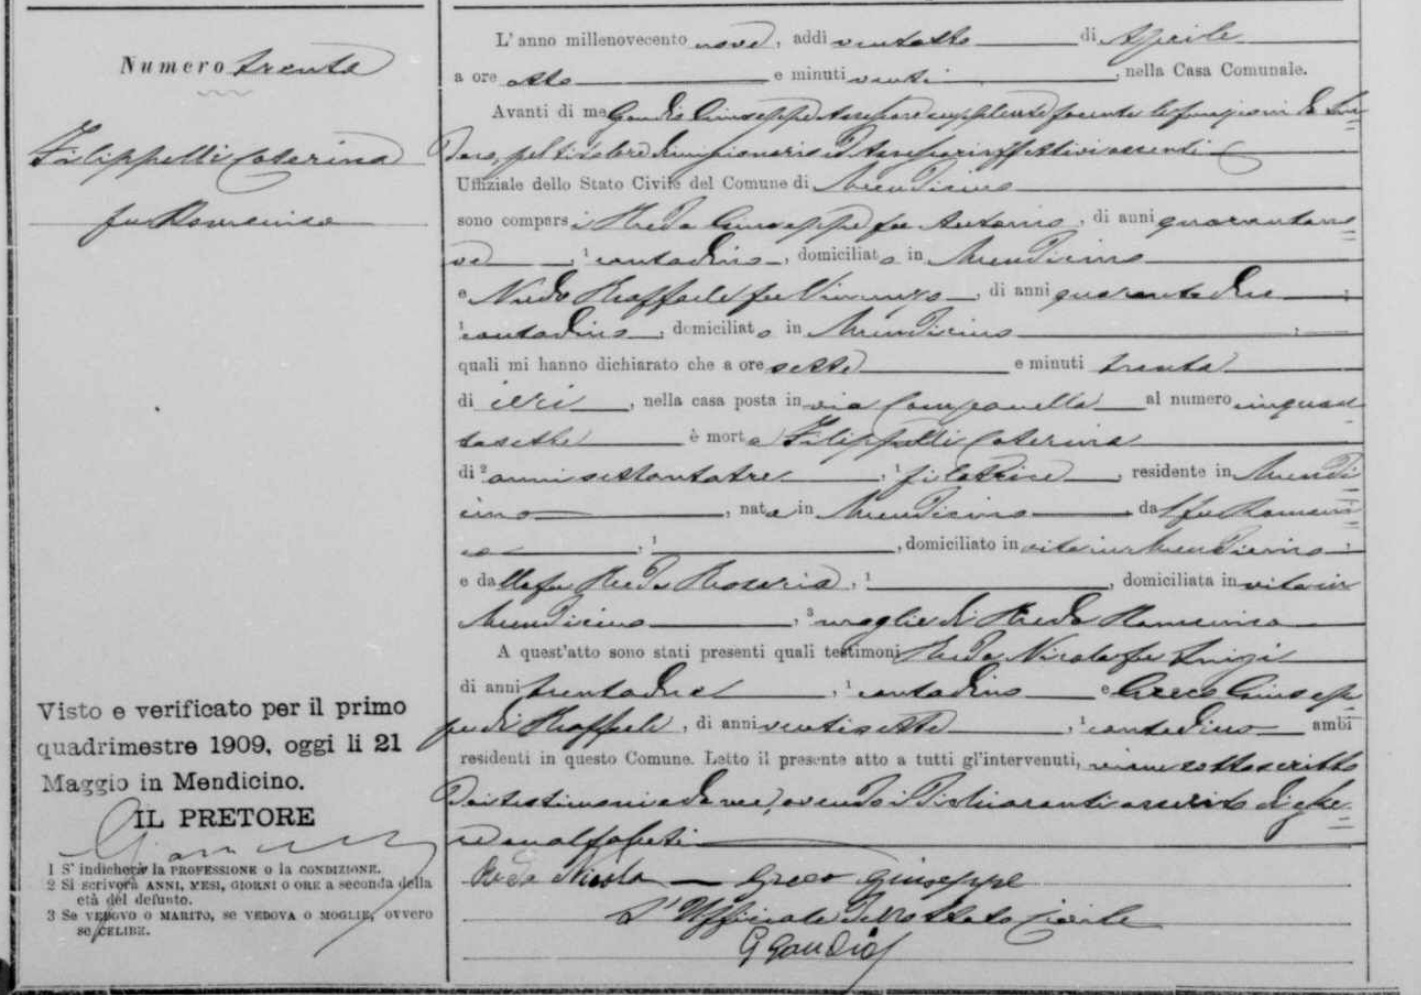 Numero trenta
Filippelli Caterina
fu Domenico
Visto e verificato per il primo
quadrimestre 1909, oggi li 21
Maggio in Mendicino.
IL PRETORE
1 S' indicherà la PROFESSIONE o la CONDIZIONE.
2 Si scriverà ANNI, MESI, GIORNI O ORE a seconda della
età del defunto.
3 Se VEDOVO O MARITO, se VEDOVA O MOGLIE, ovvero
se CELIBE.
L' anno millenovecento nove, addì ventotto di Aprile
a ore otto e minuti venti, nella Casa Comunale.
Avanti di me Gaudio Giuseppe Assessore supplente facente le funzioni di Sin=
daco, pel titolare dimissionario ed Assessori effettivi assenti
Uffiziale dello Stato Civile del Comune di Mendicino
sono comparsi Reda Giuseppe fu Antonio, di anni quarantano=
ve, 1 contadino, domiciliato in Mendicino
e Nudo Raffaele fu Vincenzo, di anni quarantadue,
1 contadino, domiciliato in Mendicino,
quali mi hanno dichiarato che a ore sette e minuti trenta
di ieri, nella casa posta in via Campanella al numero cinquan
tasette è morta Filippelli Caterina
di 2 anni settantatre, 1 filatrice, residente in Mendi=
cino, nata in Mendicino, dal fu Domeni=
co, 1, domiciliato in vita in Mendicino,
e dalla fu Reda Rosaria, 1, domiciliata in vita in
Mendicino, 3 moglie di Reda Domenico
A quest'atto sono stati presenti quali testimoni Reda Nicola fu Luigi
di anni trentadue, 1 contadino e Greco Giusep=
pe di Raffaele, di anni ventisette, 1 contadino ambi
residenti in questo Comune. Letto il presente atto a tutti gl'intervenuti, viene sottoscritto
dai testimoni e da me, avendo i dichiaranti asserito di esse=
re analfabeti
Reda Nicola — Greco Giuseppe
L'Ufficiale dello Stato Civile
G Gaudio